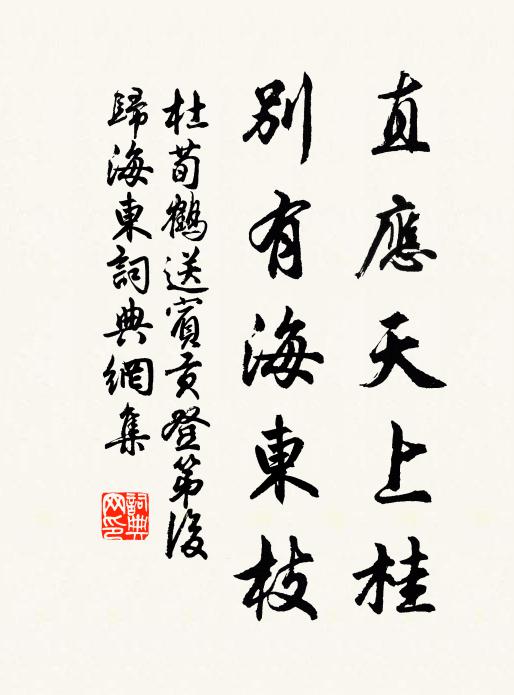 直應天上桂
別有海東枝
杜荀鶴送賓貢登第後
歸海東詞典網集
詞典
网印